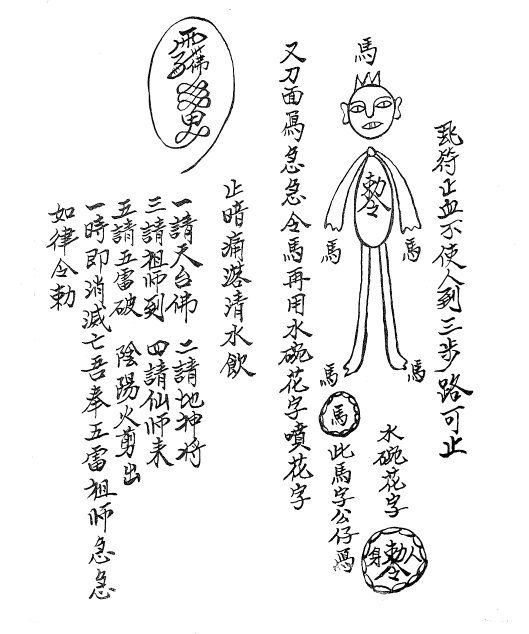 符止血不使人到三步路可止
水碗花字
勅令
人身
馬
勅令
馬
馬
馬
馬
馬
此馬字公仔
又刀面急急令馬再用水碗花字噴花字
止暗痛落清水飲
一請天台佛 二請地神將
三請祖師到 四請仙師來
五請五雷破 陰陽火剪出
一時即消滅亡吾奉五雷祖師急急
如律令勅